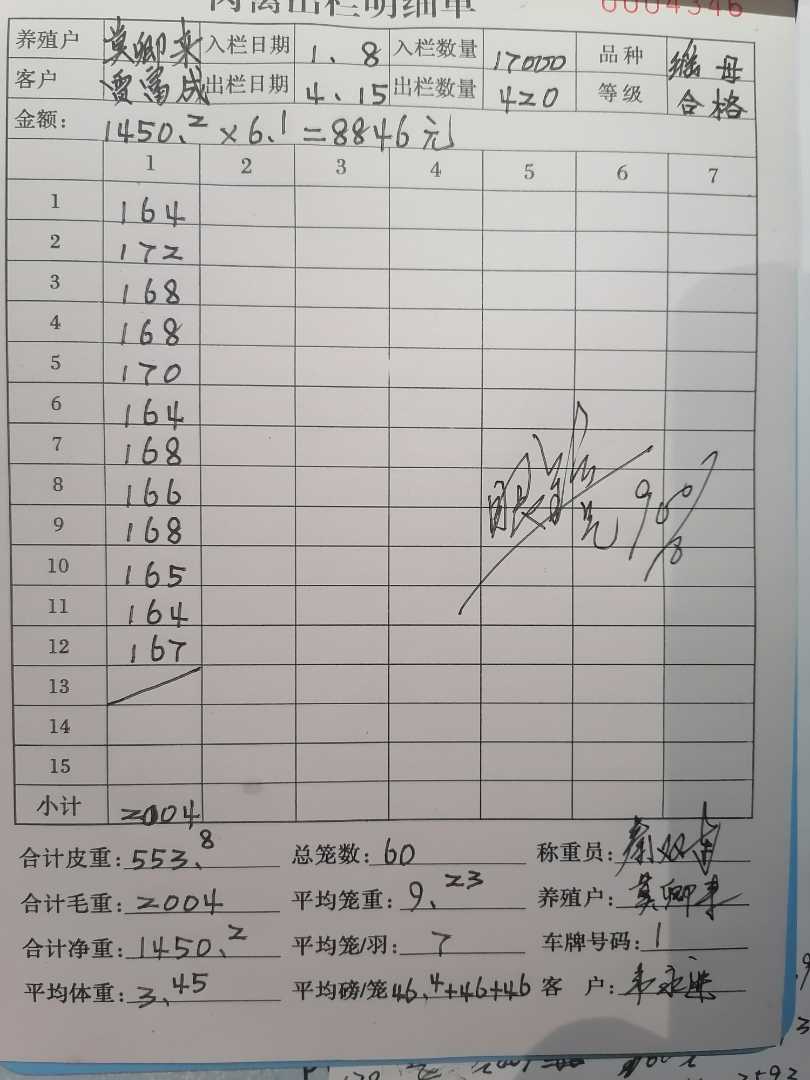 肉禽出栏明细单
0004346
养殖户 莫卿来 入栏日期 1.8 入栏数量 17000 品种 继母
客户 贾富成 出栏日期 4.15 出栏数量 420 等级 合格
金额: 1450.2×6.1=8846元
1 2 3 4 5 6 7
1 164
2 172
3 168
4 168
5 170
6 164
7 168
8 166
9 168
10 165
11 164
12 167
13
14
15
小计 2004
合计皮重: 553.8 总笼数: 60 称重员:
合计毛重: 2004 平均笼重: 9.23 养殖户: 莫卿来
合计净重: 1450.2 平均笼/羽: 7 车牌号码: 1
平均体重: 3.45 平均磅/笼 46.4+46+46 客 户: